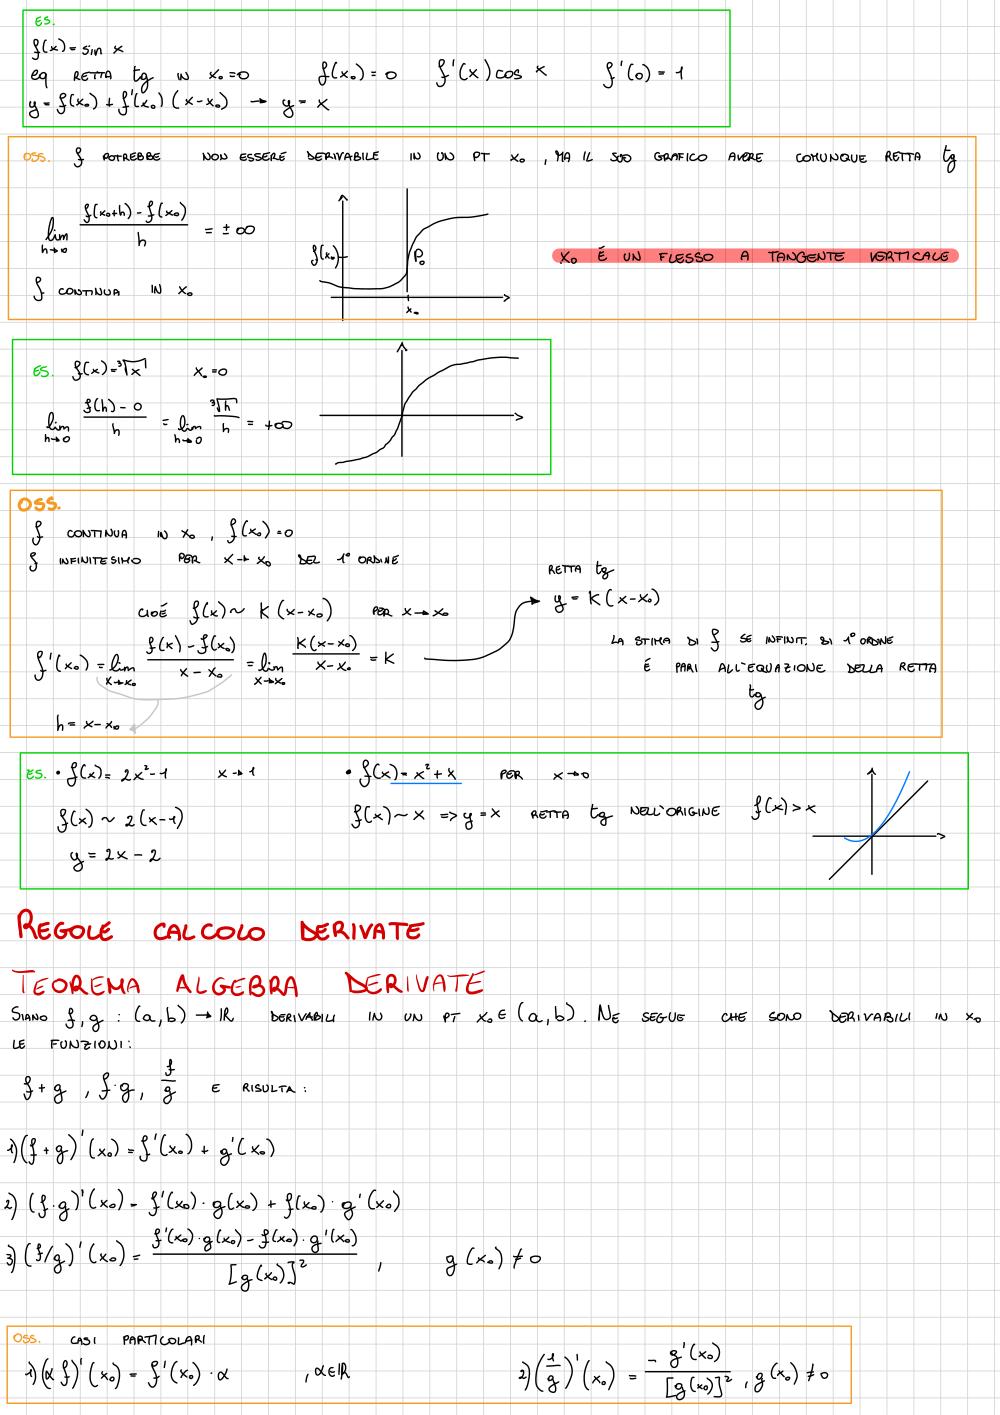 ES.
f(x) = sin x
eq RETTA tg IN x₀=0   f(x₀) = 0   f'(x) cos x   f'(0) = 1
y = f(x₀) + f'(x₀) (x-x₀) → y = x
OSS. f POTREBBE NON ESSERE DERIVABILE IN UN PT x₀, MA IL SUO GRAFICO AVERE COMUNQUE RETTA tg
lim h→0 (f(x₀+h) - f(x₀))/h = ±∞
f(x₀)   P₀
X₀ É UN FLESSO A TANGENTE VERTICALE
f CONTINUA IN x₀
x₀
ES. f(x) = ³√x   x₀=0
lim h→0 (f(h) - 0)/h = lim h→0 ³√h/h = +∞
OSS.
f CONTINUA IN x₀, f(x₀)=0
f INFINITESIMO PER x→x₀ DEL 1° ORDINE
RETTA tg
CIOÉ f(x) ~ K(x-x₀) PER x→x₀   y = K(x-x₀)
f'(x₀) = lim x→x₀ (f(x) - f(x₀))/(x - x₀) = lim x→x₀ K(x-x₀)/(x-x₀) = K
LA STIMA DI f SE INFINIT. DI 1° ORDINE
É PARI ALL'EQUAZIONE DELLA RETTA
tg
h = x-x₀
ES. • f(x) = 2x²-1   x→1   • f(x) = x²+x PER x→0
f(x) ~ 2(x-1)   f(x) ~ x => y=x RETTA tg NELL'ORIGINE f(x) > x
y = 2x - 2
REGOLE CALCOLO DERIVATE
TEOREMA ALGEBRA DERIVATE
SIANO f,g : (a,b) → ℝ DERIVABILI IN UN PT x₀ ∈ (a,b). NE SEGUE CHE SONO DERIVABILI IN x₀
LE FUNZIONI:
f+g, f·g, f/g E RISULTA:
1) (f+g)'(x₀) = f'(x₀) + g'(x₀)
2) (f·g)'(x₀) = f'(x₀)·g(x₀) + f(x₀)·g'(x₀)
3) (f/g)'(x₀) = (f'(x₀)·g(x₀) - f(x₀)·g'(x₀))/[g(x₀)]² , g(x₀) ≠ 0
OSS. CASI PARTICOLARI
1) (α f)'(x₀) = f'(x₀)·α , α∈ℝ   2) (1/g)'(x₀) = -g'(x₀)/[g(x₀)]² , g(x₀) ≠ 0